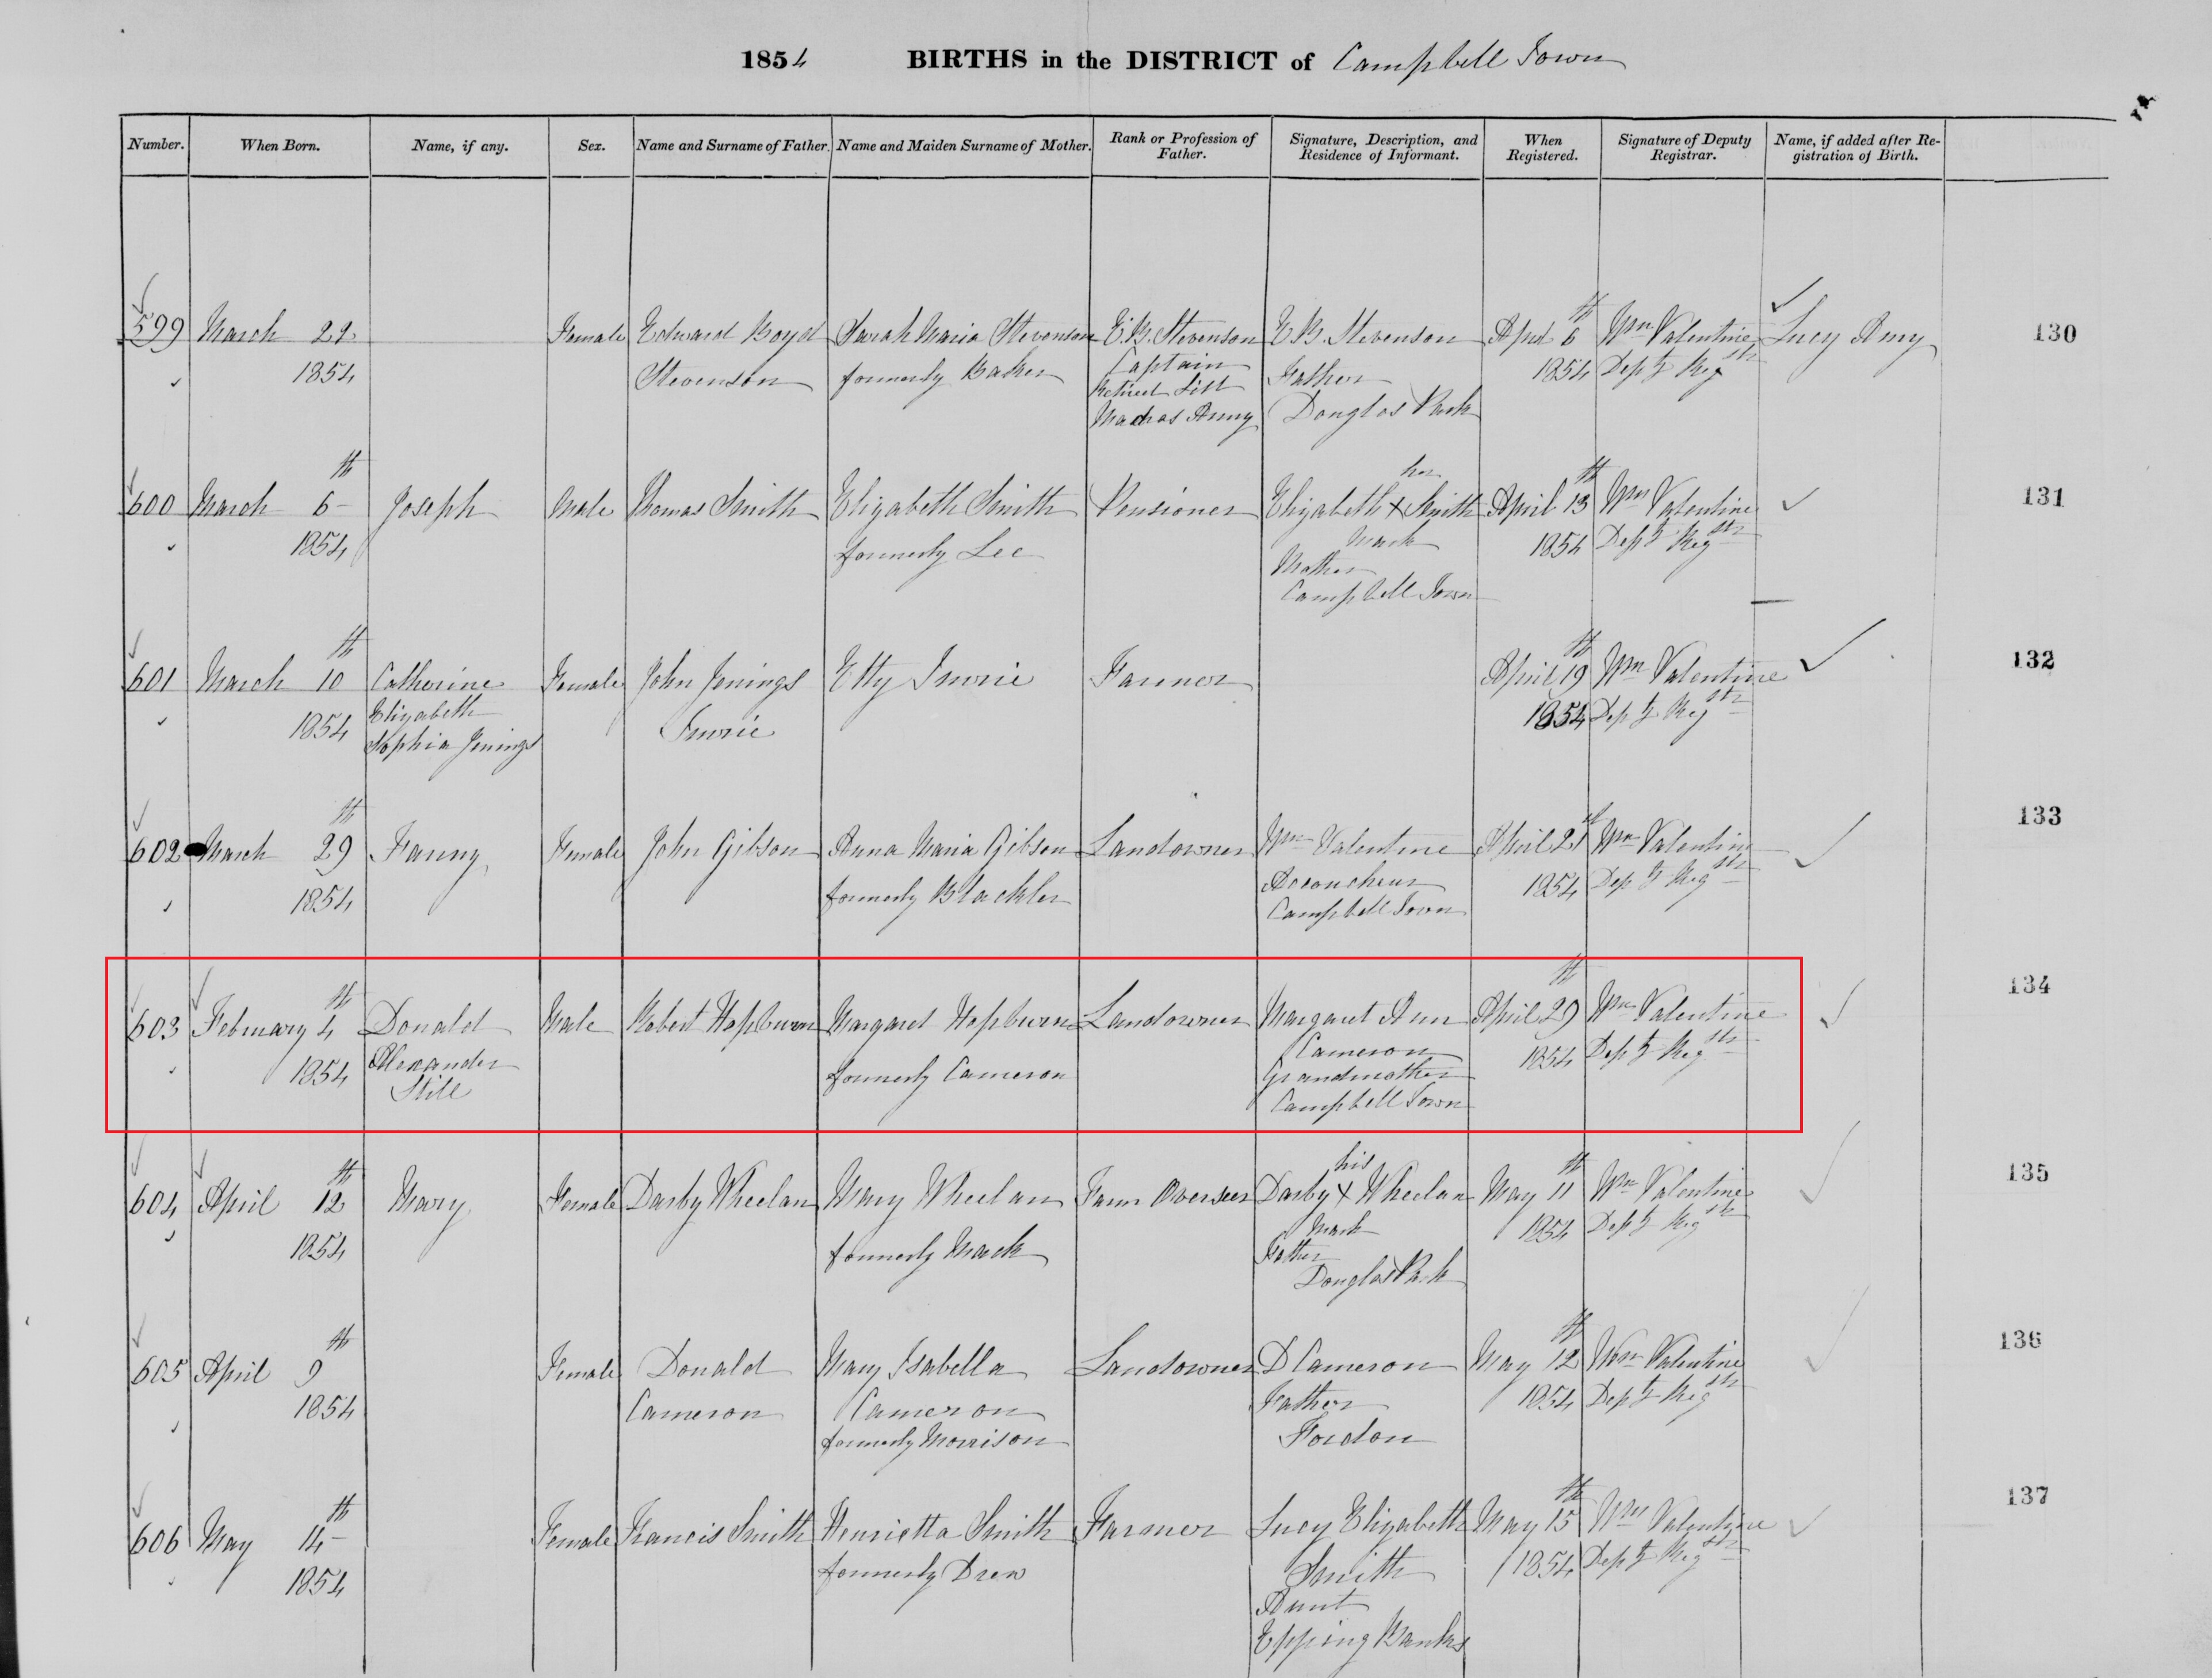 1854 BIRTHS in the DISTRICT of Campbell Town
Number. When Born. Name, if any. Sex. Name and Surname of Father. Name and Maiden Surname of Mother. Rank or Profession of Father. Signature, Description, and Residence of Informant. When Registered. Signature of Deputy Registrar. Name, if added after Registration of Birth.
599 March 22 Female Edward Boyd Sarah Maria Stevenson E. B. Stevenson E B. Stevenson April 6th Wm Valentine Lucy Amy 130
1854 Stevenson formerly Baker Captain Father 1854 Depty Regstr
Retired List
Madras Army Douglas Park
600 March 6th Joseph Male Thomas Smith Elizabeth Smith Pensioner Elizabeth her X Smith April 13th Wm Valentine 131
1854 formerly Lee mark 1854 Depty Regstr
Mother
Campbell Town
601 March 10th Catherine Female John Jenings Etty Imrie Farmer April 19th Wm Valentine 132
1854 Elizabeth Imrie 1854 Depty Regstr
Sophia Jenings
602 March 29th Fanny Female John Gibson Anna Maria Gibson Landowner Wm Valentine April 21st Wm Valentine 133
1854 formerly Blackler Accoucheur 1854 Depty Regstr
Campbell Town
603 February 4th Donald Male Robert Hepburn Margaret Hepburn Landowner Margaret Ann April 29th Wm Valentine 134
1854 Alexander formerly Cameron Cameron 1854 Depty Regstr
Stile Grandmother
Campbell Town
604 April 12th Mary Female Darby Wheelan Mary Wheelan Farm Overseer Darby his X Wheelan May 11th Wm Valentine 135
1854 formerly Mack mark 1854 Depty Regstr
Father
Douglas Park
605 April 9th Female Donald Mary Isabella Landowner D Cameron May 12th Wm Valentine 136
1854 Cameron Cameron Father 1854 Depty Regstr
formerly Morrison Fordon
606 May 14th Female Francis Smith Henrietta Smith Farmer Lucy Elizabeth May 15th Wm Valentine 137
1854 formerly Drew Smith 1854 Depty Regstr
Aunt
Epping Banks